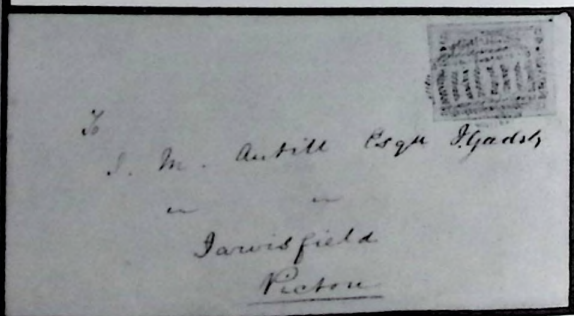 To
J. M. Antill Esqr
Jarvisfield
Picton